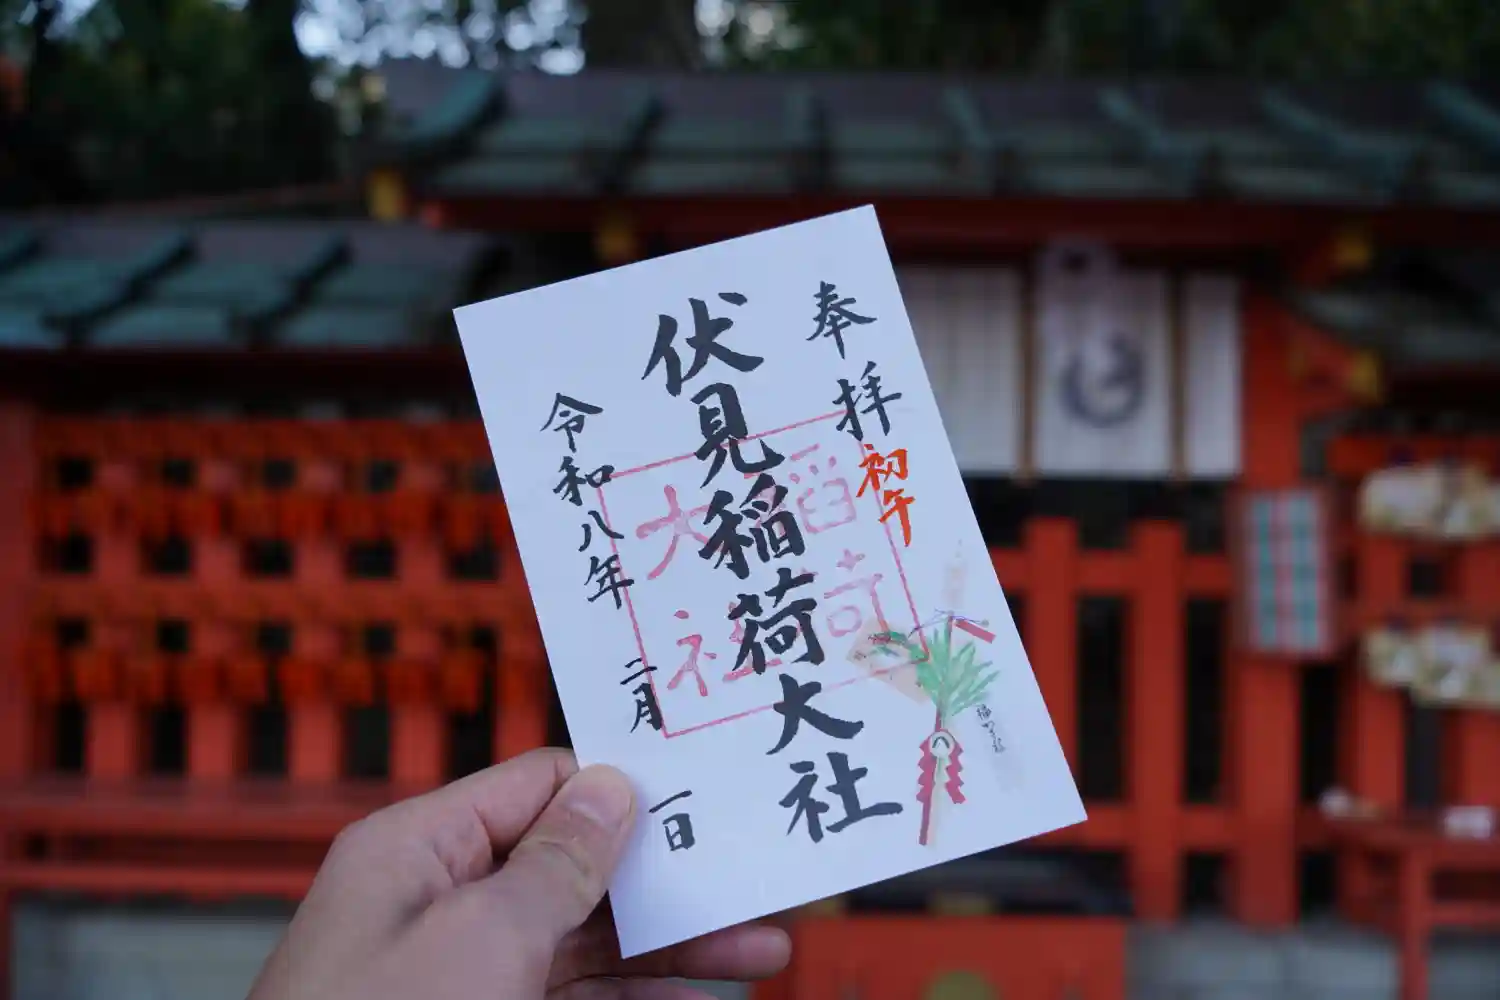 奉拝
初午
伏見稲荷大社
令和八年二月一日
稲荷
大社